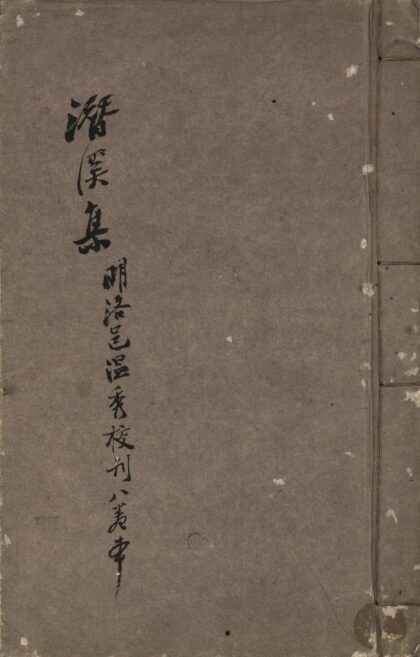 潛溪集
明洛邑温秀校刊八卷本